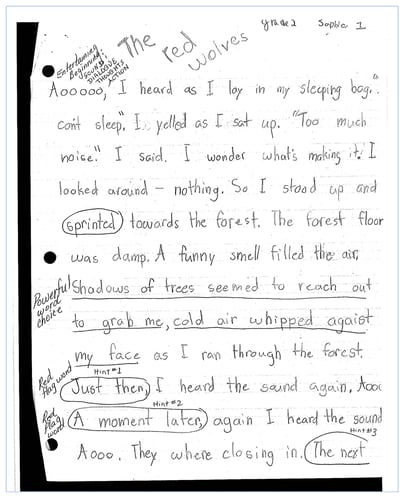 grade 2 Sophia 1
The red wolves
Entertaining
Beginning:
SOUND
DIALOGUE
THOUGHTS
ACTION
Aooooo, I heard as I lay in my sleeping bag. "
can't sleep". I yelled as I sat up. "Too much
noise." I said. I wonder what's making it. I
looked around – nothing. So I stood up and
sprinted towards the forest. The forest floor
was damp. A funny smell filled the air,
Powerful
word
choice
Shadows of trees seemed to reach out
to grab me, cold air whipped agaist
my face as I ran through the forest.
Red
flag word
Hint #1
Just then, I heard the sound again, Aooo
Red
flag
word
Hint #2
A moment later, again I heard the sound
Hint #3
Aooo. They where closing in. The next